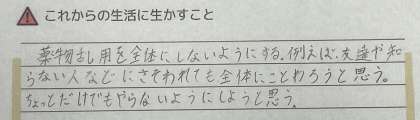 これからの生活に生かすこと
薬物乱用を全体にしないようにする。例えば、友達や知
らない人などにさそわれても全体にことわろうと思う。
ちょっとだけでもやらないようにしようと思う。